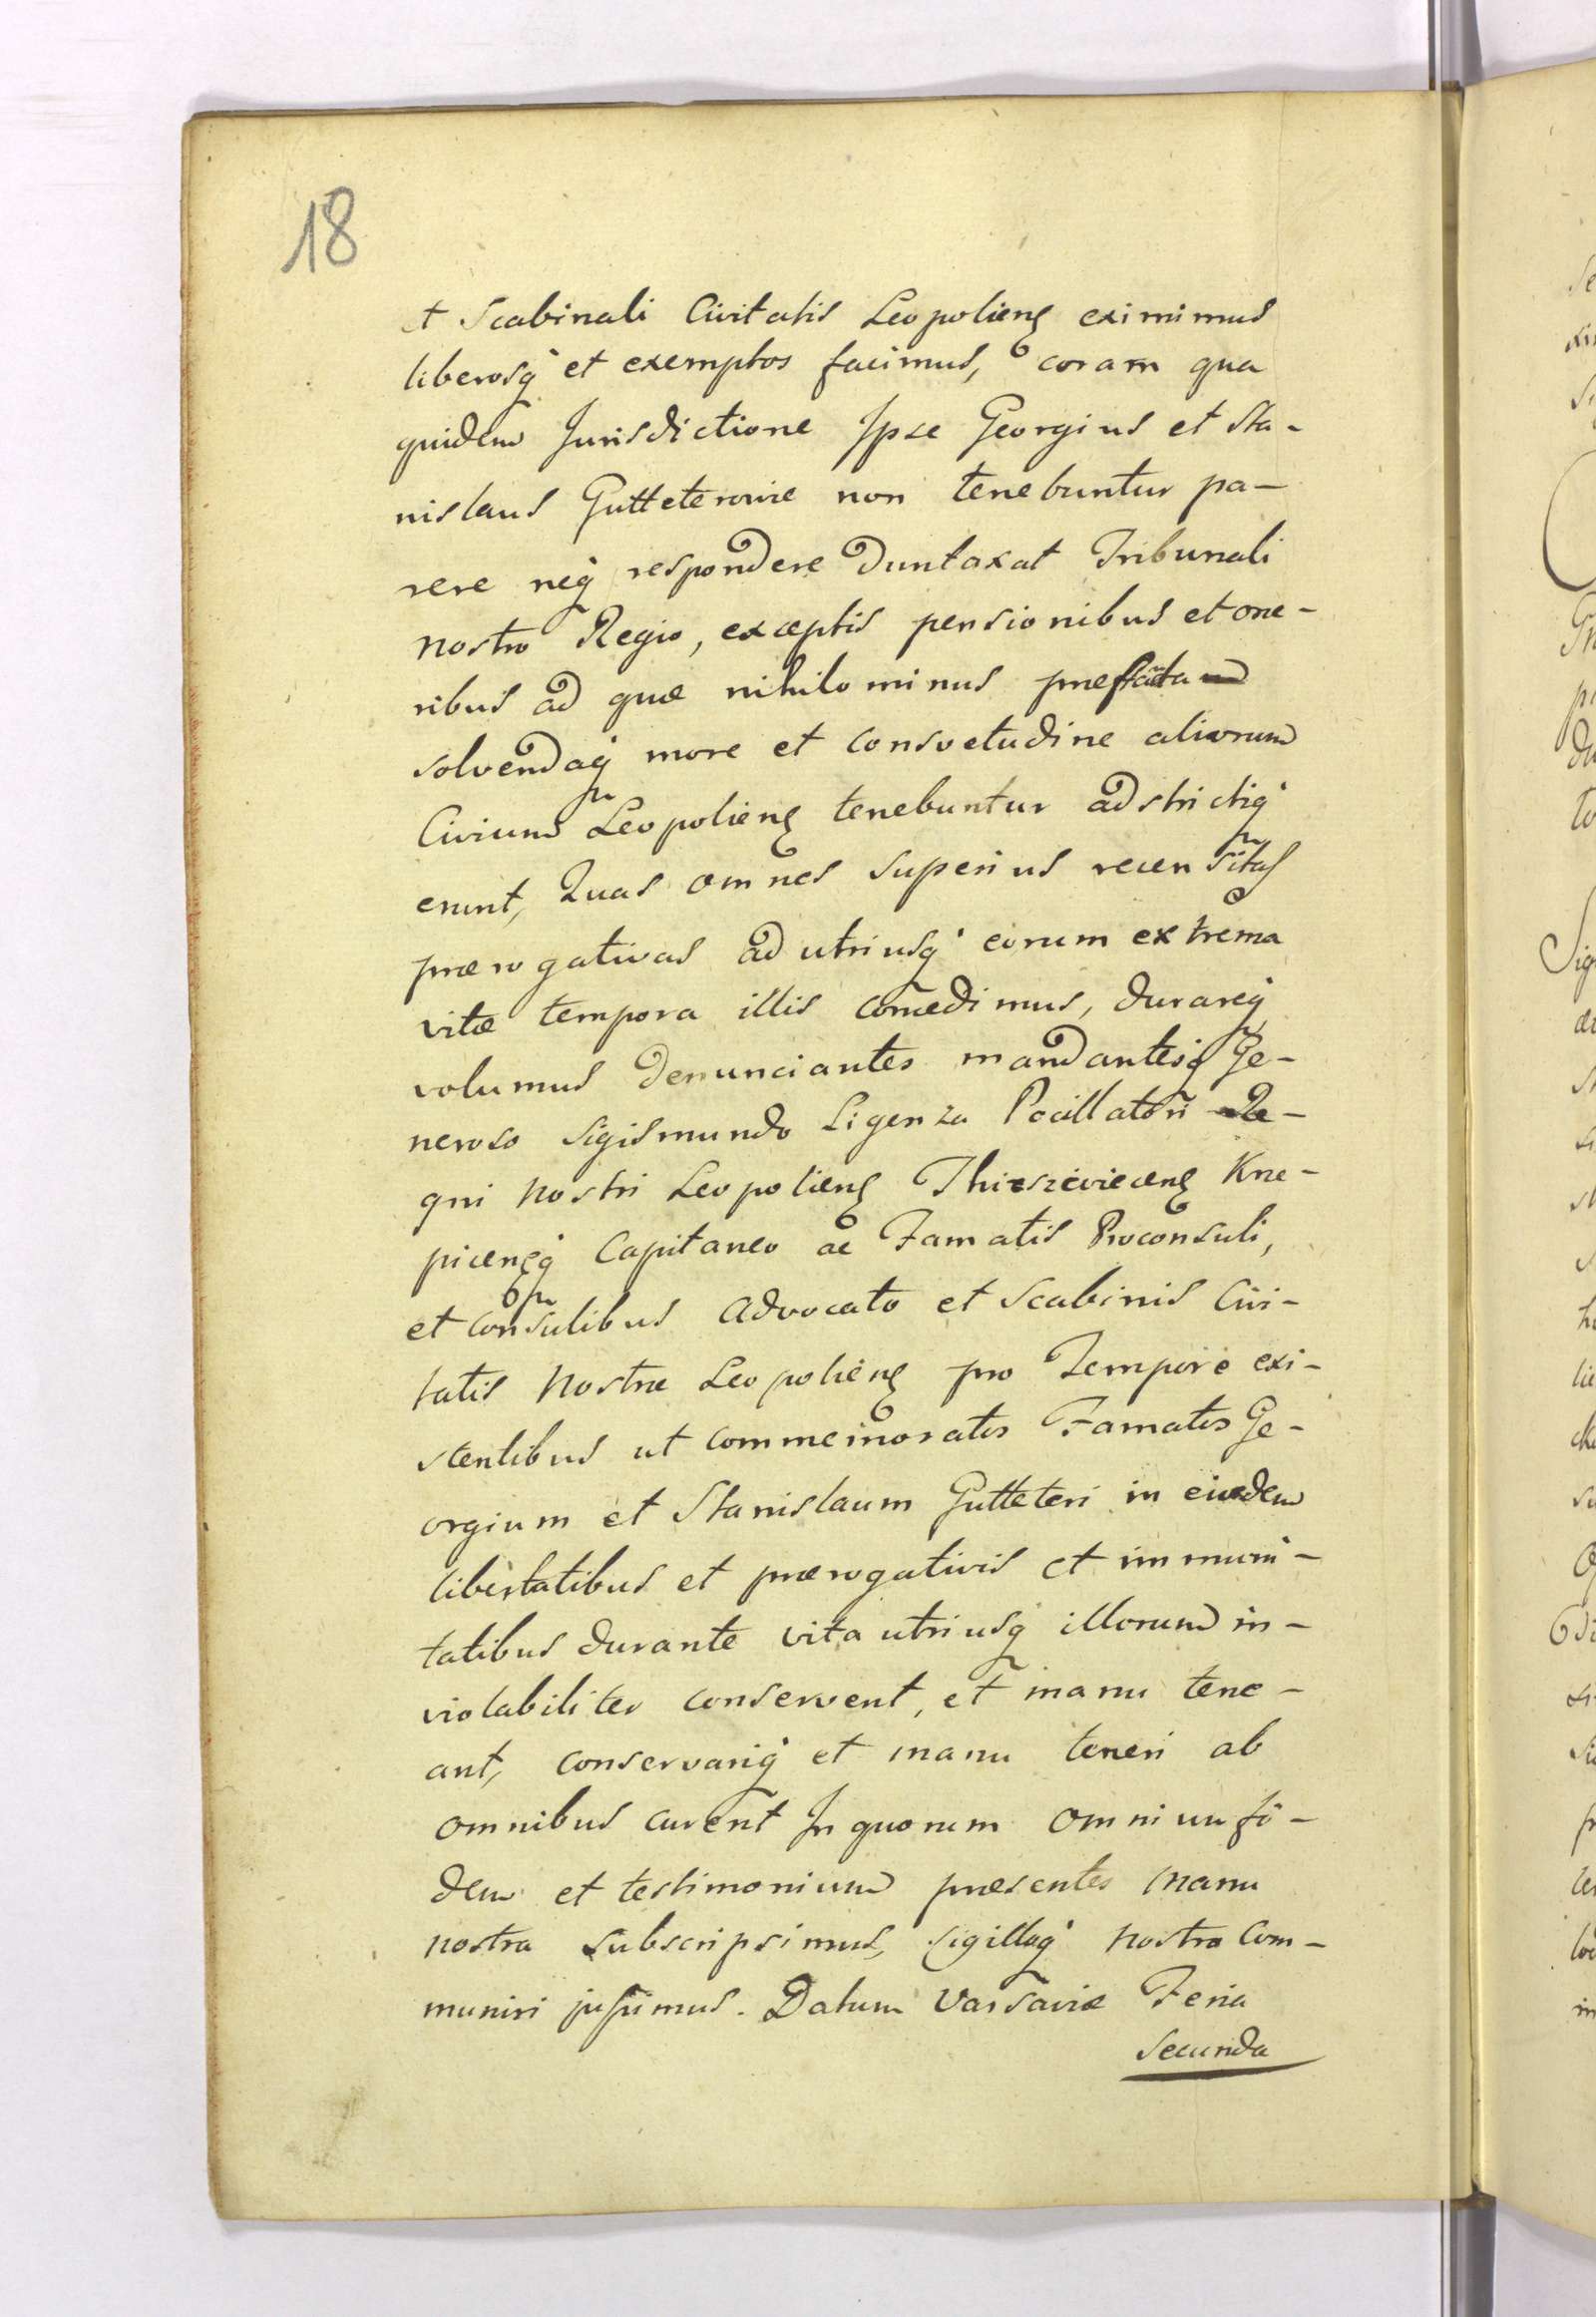 18
et Scabinali Civitatis Leopolienꝭ eximimus
liberosq́ et exemptos facimus, coram qua
quidem Jurisdictione Ipse Georgius et Sta-
nislaus Gutteterowie non tenebuntur pa-
rere neq́ respondere duntaxat Tribunali
nostro Regio, exceptis pensionibus et one-
ribus ad quæ nihilominus præstanda
solvendaq́ more et consvetudine aliorum
Civium Leopolienꝭ tenebuntur adstrictiq́
erunt, Quas omnes superius recensitas
prærogativas ad utriusq́ eorum extrema
vitæ tempora illis concedimus, durareq́
volumus denunciantes mandantesq́ Ge-
neroso Sigismundo Ligenza Pocillatori Re-
gni nostri Leopolienꝭ Thirszeviecenꝭ Kne-
picenꝭq́ Capitaneo ac Famatis Proconsuli,
et Consulibus Advocato et Scabinis Civi-
tatis Nostræ Leopolienꝭ pro Tempore exi-
stentibus ut commemoratos Famatos Ge-
orgium et Stanislaum Gutteteri in eisdem
libertatibus et prærogativis et immuni-
tatibus durante vita utriusq́ illorum in-
violabiliter conservent, et manu tene-
ant, conservariq́ et manu teneri ab
omnibus curent In quorum omnium fi-
dem et testimonium præsentes manu
nostra subscripsimus, sigilloq́ nostro Com-
muniri jussimus. Datum Varsaviæ Feria
Secunda